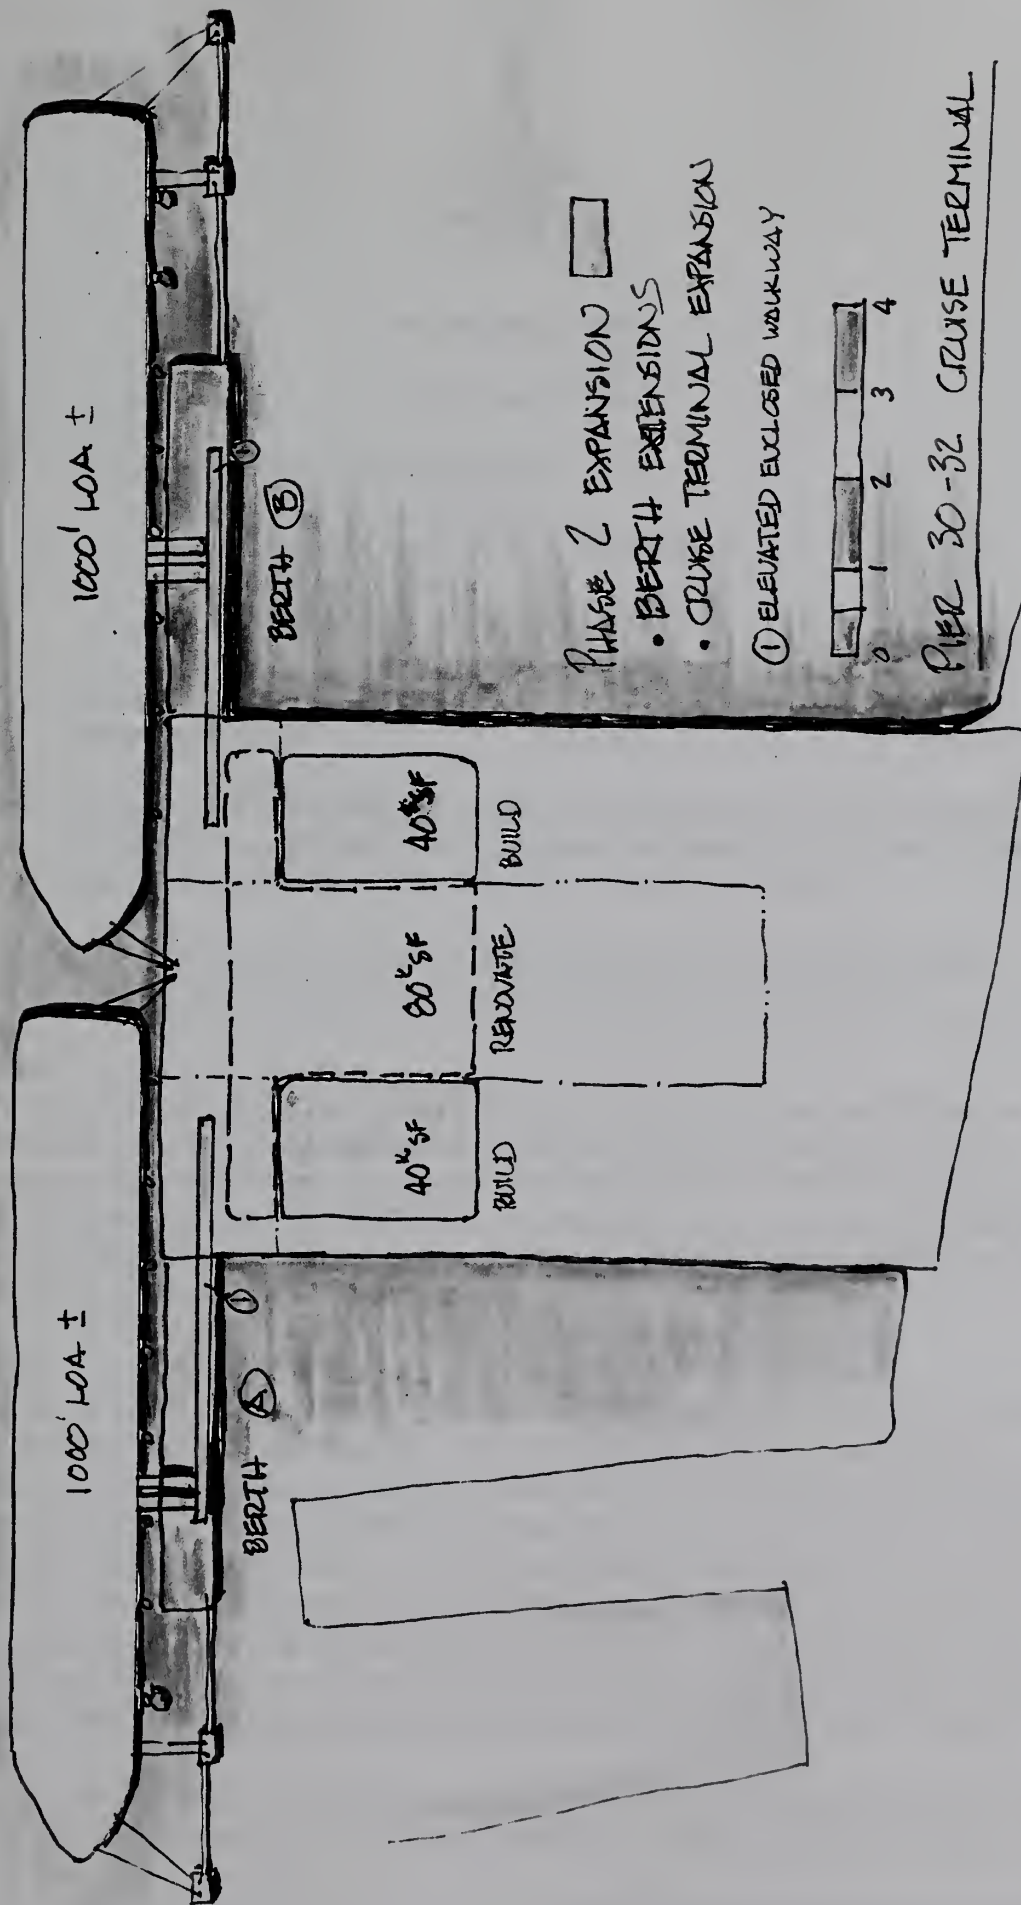 1000' LOA ±
1000' LOA ±
BERTH A
1
BERTH B
1
40K SF
80K SF
40K SF
BUILD
RENOVATE
BUILD
PHASE 2 EXPANSION
• BERTH EXTENSIONS
• CRUISE TERMINAL EXPANSION
① ELEVATED ENCLOSED WALKWAY
0 1 2 3 4
PIER 30-32 CRUISE TERMINAL